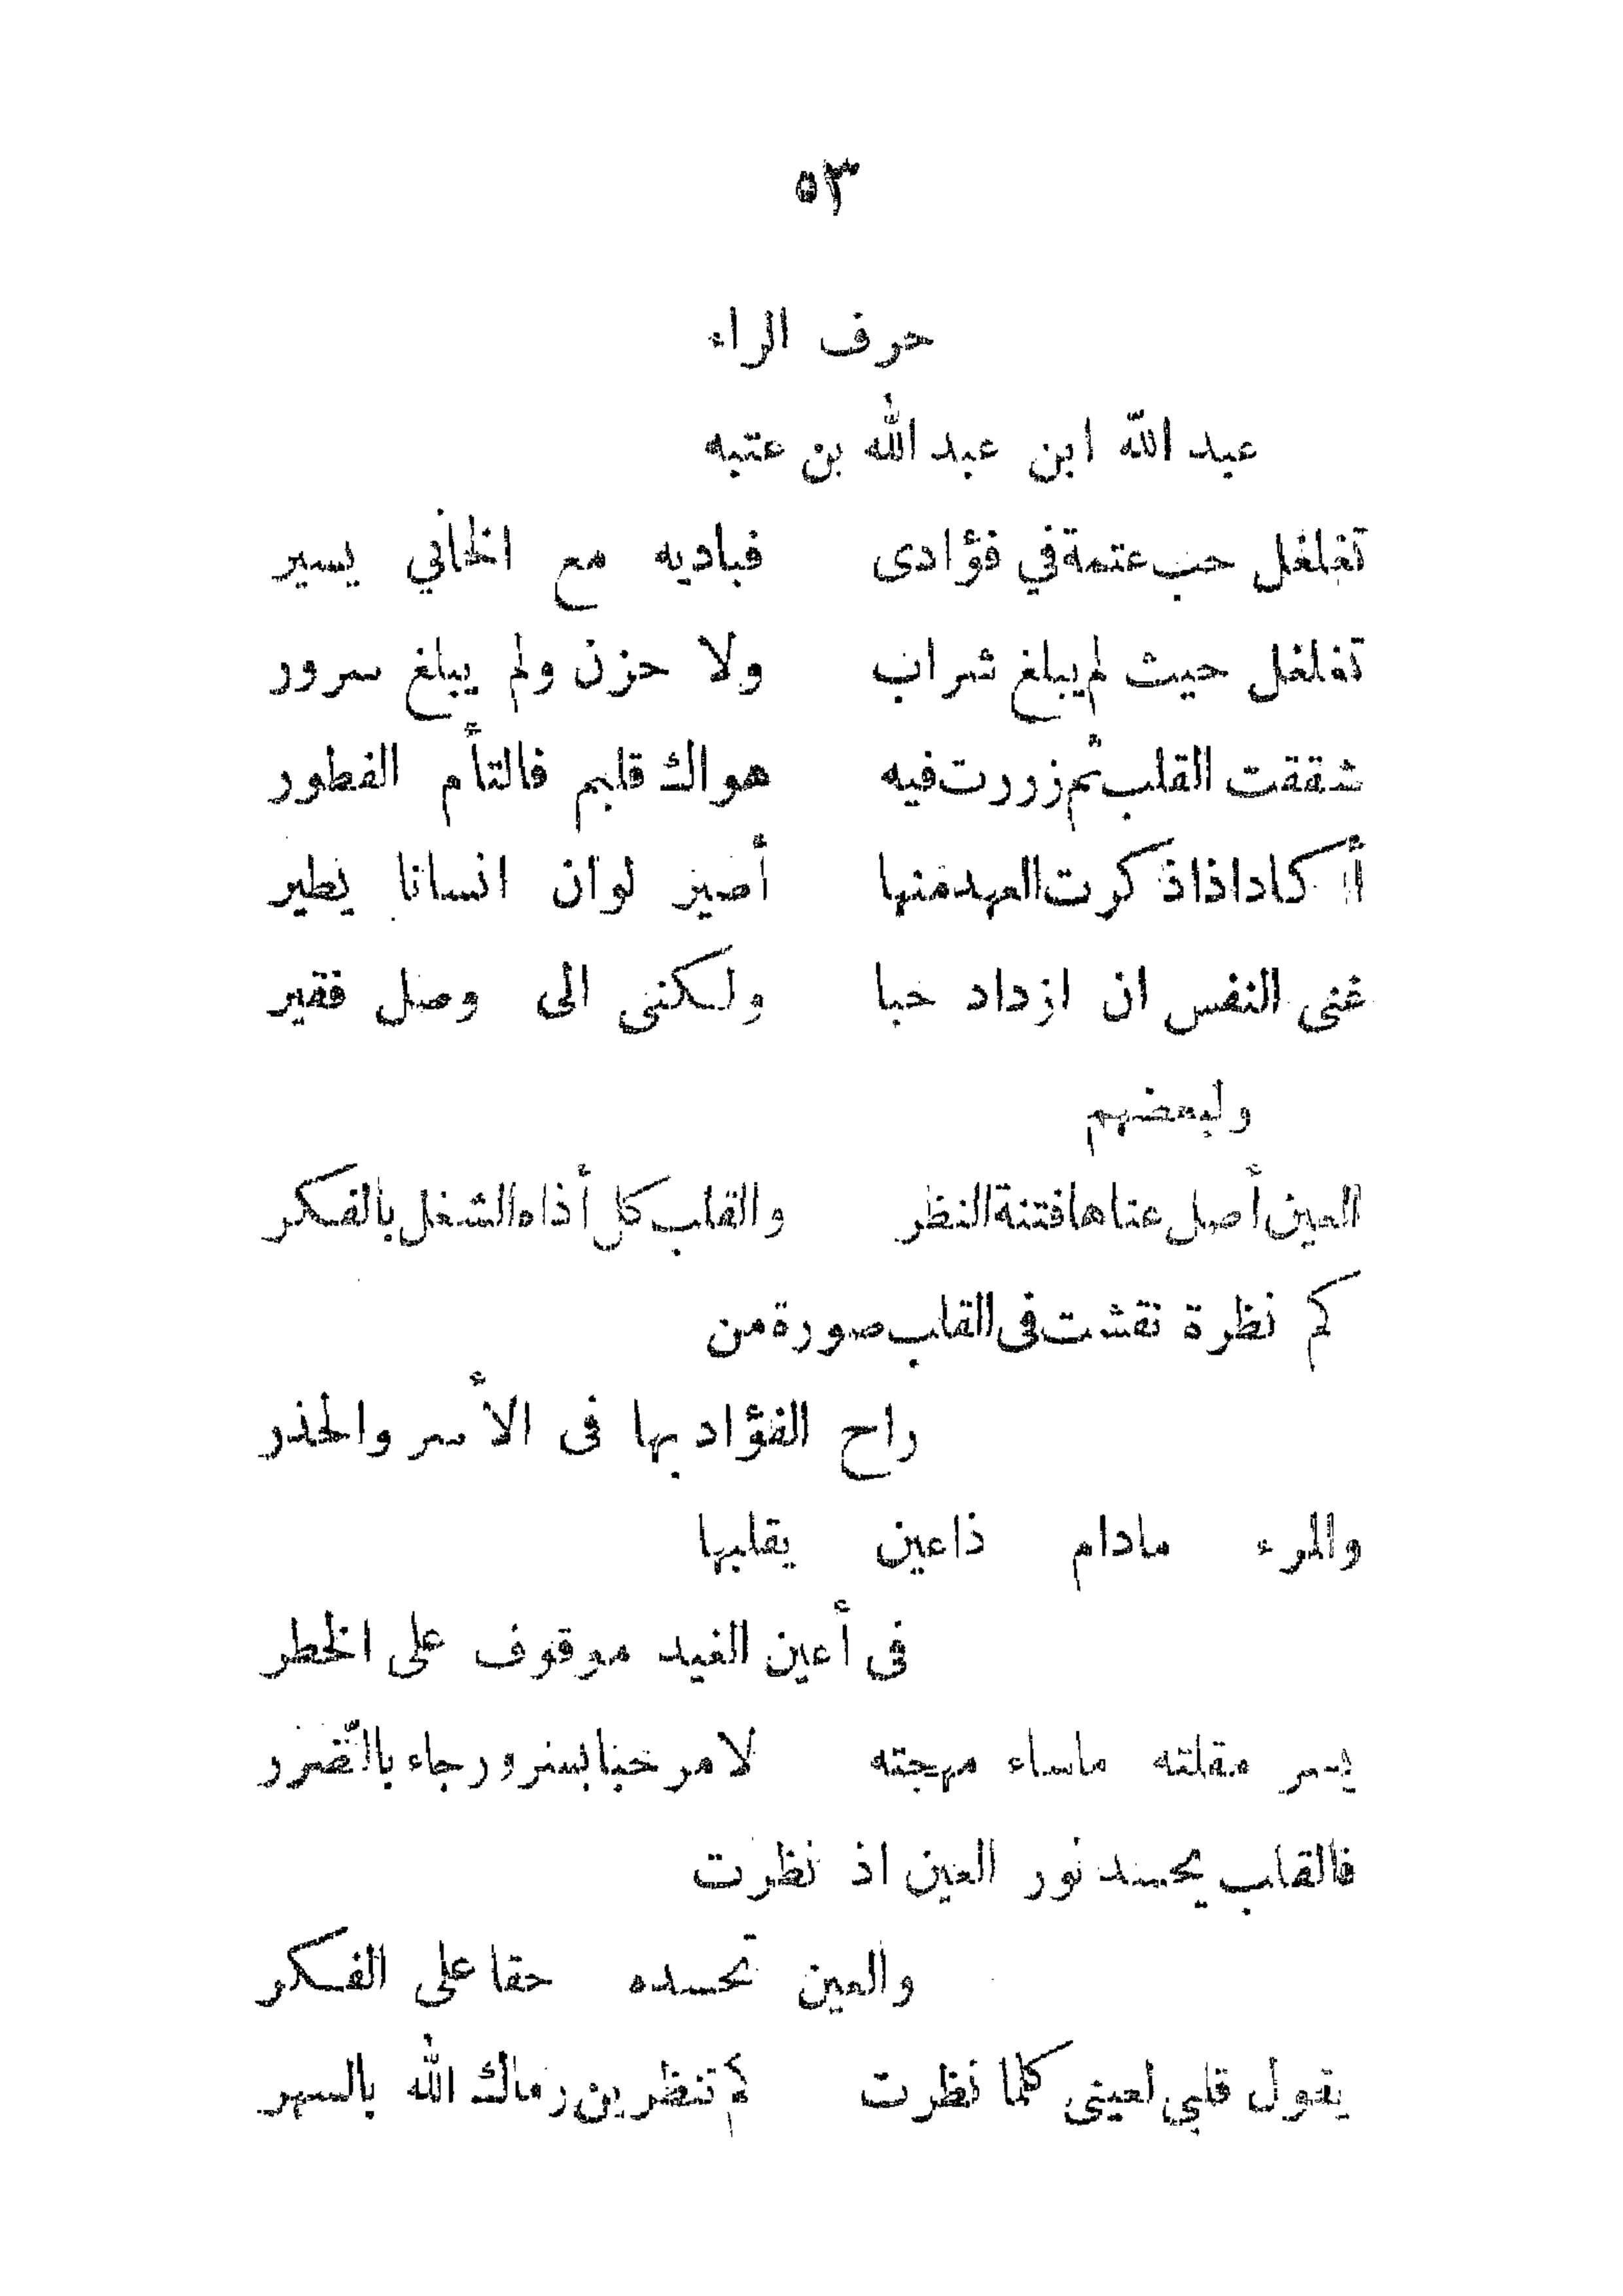 ٥٣
حرف الراء
عبد اللّه ابن عبد الله بن عتبه
تغلغل حب عتمة في فؤادى فباديه مع الخافي يسير
تغلغل حيث لم يبلغ شراب ولا حزن ولم يبلغ سرور
شققت القلب ثم زررت فيه هواك قليم فالتأم الفطور
أكاد اذا ذكرت العهد منها أصير لو ان انسانا يطير
غنى النفس ان ازداد حبا ولكنى الى وصل فقير
ولبعضهم
العين أصل عناها فتنة النظر والقلب كل أذاه الشغل بالفكر
كم نظرة نقشت فى القلب صورة من
راح الفؤاد بها فى الأسر والحذر
والمرء مادام ذاعين يقلبها
فى أعين الغيد موقوف على الخطر
يسر مقلته ماساء مهجته لا مرحبا بسرور جاء بالضّرر
فالقلب يحسد نور العين اذ نظرت
والعين تحسده حقا على الفكر
يقول قلبي لعينى كلما نظرت كم تنظرين رماك الله بالسهر